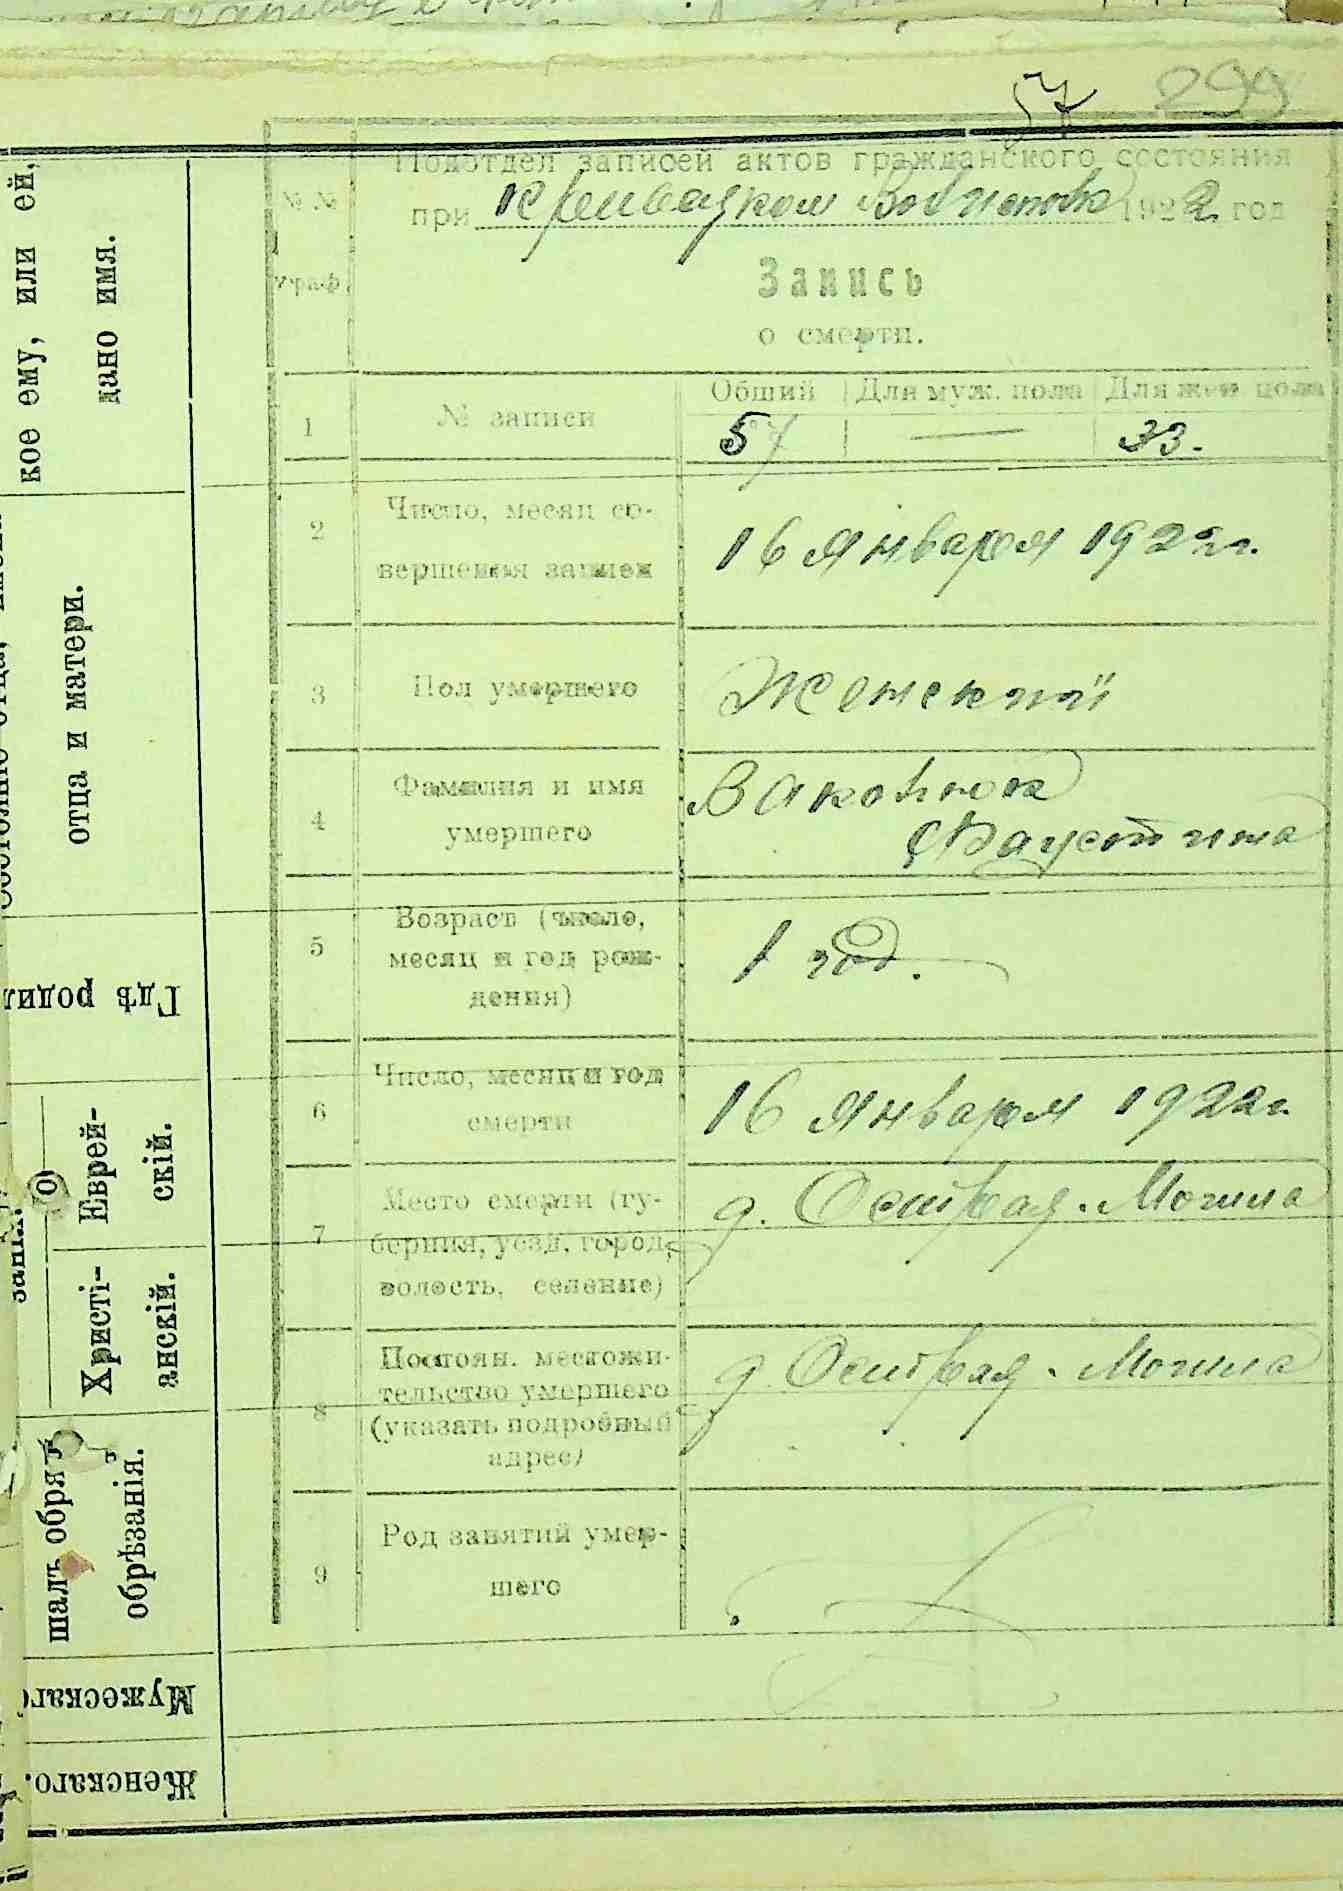 57 299
Подотдел записей актов гражданского состояния
при 1922 год
№ №
граф.
Запись
о смерти.
1 № записи Общий Для муж. пола Для жен пола
57 — 33.
2 Число, месяц со-
вершения записи
16 Января 1922 г.
3 Пол умершего Женский
4 Фамилия и имя
умершего
Ваконюк
Фаустина
5 Возраст (число,
месяц и год рож-
дения)
1 год.
6 Число, месяц и год
смерти
16 Января 1922 г.
7 Место смерти (гу-
берния, уезд, город,
волость, селение)
д. Острая-Могила
8 Постоян. местожи-
тельство умершего
(указать подробный
адрес)
д. Острая-Могила
9 Род занятий умер-
шего
кое ему, или ей,
дано имя.
отца и матери.
Гдѣ родил
Еврей-
скій.
Христі-
анскій.
шалъ обря
обрѣзанія.
Мужескаго
Женскаго.